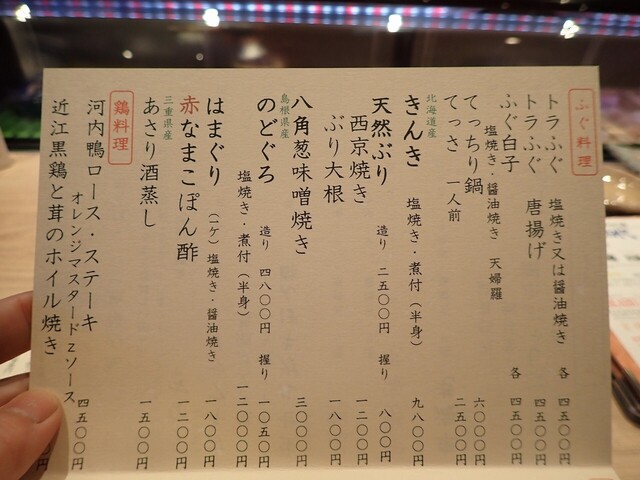 ふぐ料理
トラふぐ 塩焼き又は醤油焼き 各 四五〇〇円
トラふぐ 唐揚げ 四五〇〇円
ふぐ白子 各 四五〇〇円
塩焼き・醤油焼き 天婦羅
てっちり鍋 六〇〇〇円
てっさ 一人前 二五〇〇円
北海道産
きんき 塩焼き・煮付(半身) 九八〇〇円
天然ぶり 造り 二五〇〇円 握り 八〇〇円
西京焼き 一二〇〇円
ぶり大根 一八〇〇円
八角葱味噌焼き 三〇〇〇円
島根県産
のどぐろ 造り 四八〇〇円 握り 一〇五〇円
塩焼き・煮付(半身) 一二〇〇〇円
はまぐり (一ケ)塩焼き・醤油焼き 一八〇〇円
赤なまこぽん酢 一二〇〇円
三重県産
あさり酒蒸し 一五〇〇円
鶏料理
河内鴨ロース・ステーキ 四五〇〇円
オレンジマスタードzソース
近江黒鶏と茸のホイル焼き